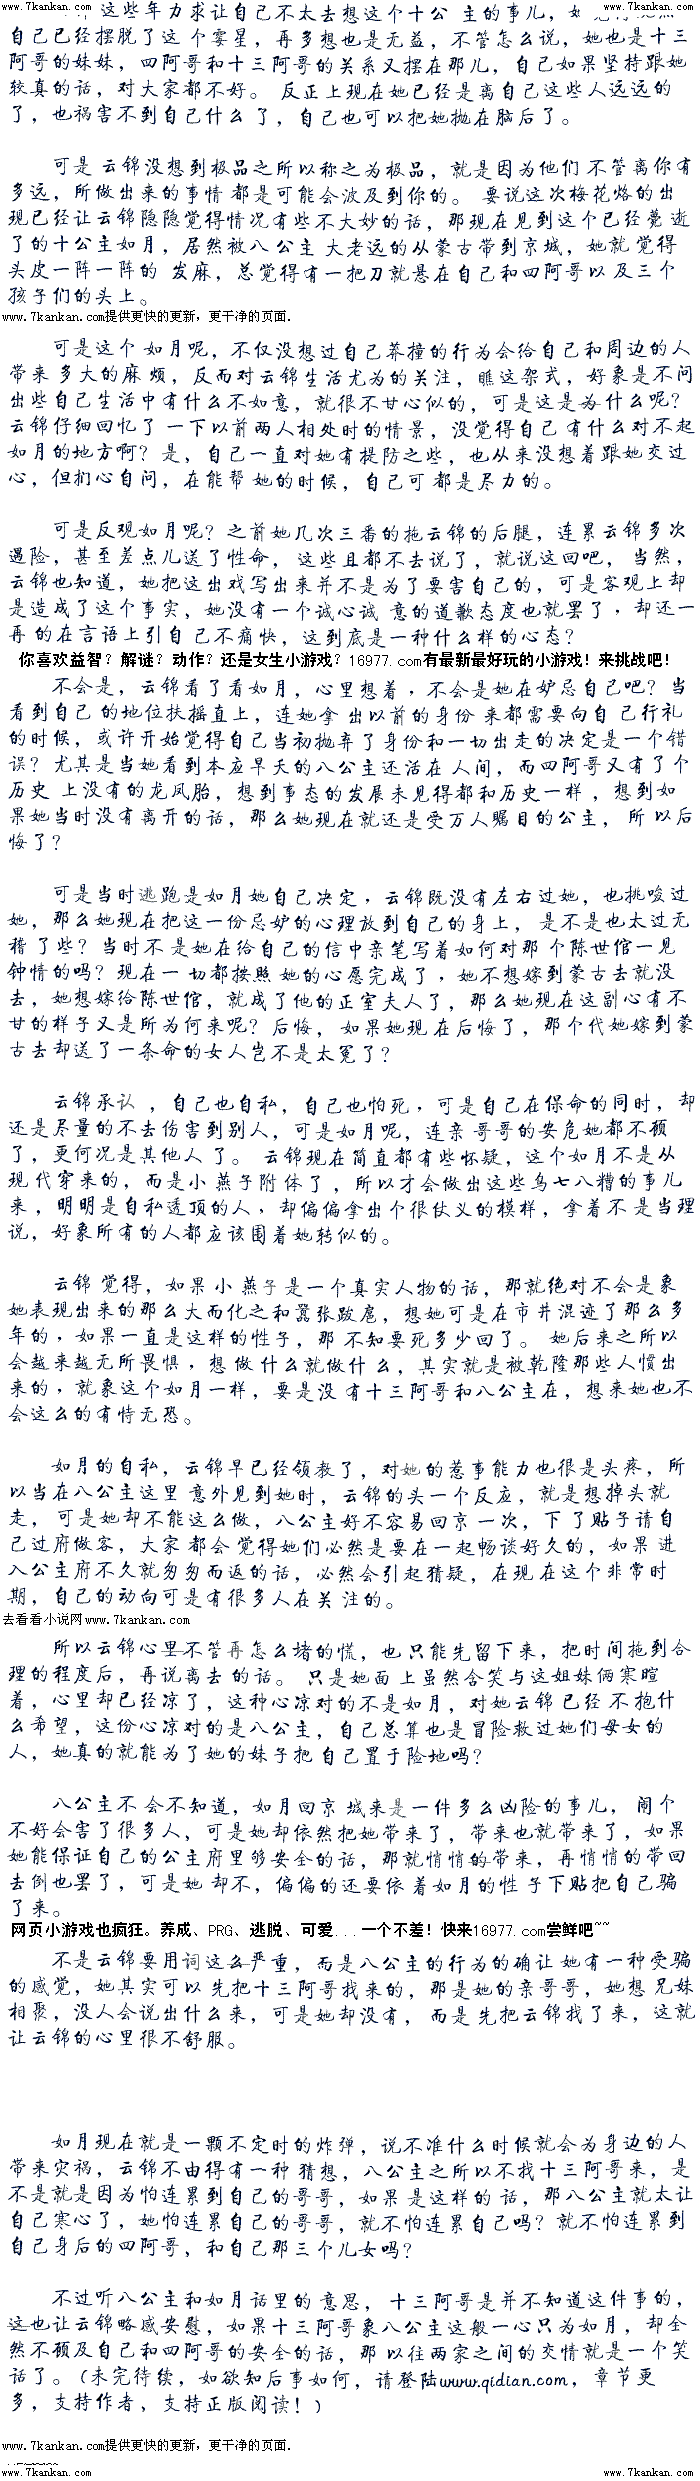 www.7kankan.com www.7kankan.com
这些年力求让自己不太去想这个十公 主的事儿，
自己已经摆脱了这个霉星，再多想也是无益，不管怎么说，她也是十三
阿哥的妹妹，四阿哥和十三阿哥的关系又摆在那儿，自己如果坚持跟她
较真的话，对大家都不好。 反正上现在她已经是离自己这些人远远的
了，也祸害不到自己什么 了，自己也可以把她抛在脑后了。
可是 云锦没想到极品之所以称之为极品，就是因为他们 不管离你有
多远，所做出来的事情 都是可能会波及到你的。 要说这次梅花烙的出
现已经让云锦隐隐觉得情况有些不大妙的话，那现在见到这个已经薨 逝
了的十公主如月，居然被八 公主 大老远的从蒙古带到京城，她就 觉得
头皮一阵一阵的 发麻，总觉得有一把刀就悬在自己和四阿哥以 及三个
孩子们的头上。
www.7kankan.com提供更快的更新，更干净的页面.
可是这个 如月呢，不仅没想过自己莽撞的行为会给自己和周边的人
带来 多大的麻 烦，反而对云锦生活尤为的关注，瞧这架式，好象是不问
出些自己生活中有什么不如意，就很不甘心似的，可是这是为什么呢？
云锦仔细回忆了 一下以前两人相处时的情景，没觉得自己 有什么对不起
如月的地方啊？是，自己一直对她有提防之些，也从来没想着跟她交过
心，但扪心自问，在能帮 她的时候，自己可 都是尽力的。
可是反观如月呢？之前她几次三番的拖云锦的后腿，连累云锦多次
遇险，甚至差点儿送了性命， 这些且都不去说了，就说这回吧，当然，
云锦也知道，她把这出戏写出来并不是为了要害自己的，可是客观上却
是造成了这个事实，她没有一个诚心诚 意的道歉态度也就罢了，却还一
再 的在言语上引自 己不痛快，这到底是一种什么样的心态？
你喜欢益智？解谜？动作？还是女生小游戏？16977.com有最新最好玩的小游戏！来挑战吧！
不会是，云锦看了看如月，心里想着，不会是她在妒忌自己吧？当
看到自己 的地位扶摇直上，连她拿 出以前的身份 来都需要向自 己行礼
的时候，或许开始觉得自己当初抛弃了身份和一切出走的决定是一个错
误？尤其是当她看到本应早夭的八公主还活在 人间，而四阿哥又有了个
历史 上没有的龙凤胎，想到事态的发展未见得都和历史一样 ，想到如
果她当时没有离开的话，那么她现在就还是受万人瞩目的公主， 所以后
悔了？
可是当时逃跑是如月她自己决定，云锦既没有左右过她，也挑唆过
她，那么她现在把这一份忌妒的心理放到自己的身上， 是不是也太过无
稽 了些？当时不 是她在给自己的信中亲笔写着如何对那 个陈世倌一见
钟情的吗？现在一 切都按照 她的心愿完成了，她不想嫁到蒙古去就没
去，她想嫁给陈世倌，就成了他的正室夫人了，那么她现在这副心有不
甘的样子又是所为何来呢？后悔， 如果她现 在后悔了，那个代她嫁到蒙
古去却送了一条命的女人岂不是太冤了？
云锦承认 ，自己也自私，自己也怕死，可是自己在保命的同时，却
还是尽量的不去伤害到别人，可是如月呢，连亲 哥哥的安危她都不顾
了，更何况是其他人 了。 云锦现在简直都有些怀疑，这个如月不是从
现 代穿来的，而是小 燕子附 体了，所以才会做出这些乌七八糟的事儿
来，明明是自私透顶的人，却偏偏拿出个很仗义的模样，拿着不 是当理
说，好象所有的人都应该围着她转似的。
云锦 觉得，如果 小 燕子 是一个真实人物的话，那就绝对不会是象
她表现出来的那么大而化之和嚣张跋扈，想她可是在市井混迹了那么多
年的，如果一直是这样的性子，那 不知要死多少回了。 她后来之所以
会越来越无所畏惧，想 做 什么就做什 么，其实就是被乾隆那些人惯出
来的，就象这个如月一样，要是没 有十三阿哥和八公主在，想来她也不
会这么的有恃无恐。
如月的自私，云锦早已经领教了，对她的惹事能力也很是头疼，所
以当在八公主这里 意外见到她时，云锦的头一个反应，就是想掉头就
走，可是她却不能这么做，八公主好不容易回京 一次，下 了贴子请自
己过府做客，大家 都会 觉得她们必然是要在一起畅谈好久的，如果 进
入公主府不久就匆匆而返的话，必然会引起猜疑，在现在这个非常时
期，自己的动向可是有很多人在关 注的。
去看看小说网www.7kankan.com
所以云锦心里不管再怎么堵的慌，也 只能先留下来，把时间拖到合
理的程度后，再说离去 的话。 只是她面 上虽然含笑与这姐妹俩寒暄
着，心里却已经凉了，这种心凉对的不是如月，对她云锦 已经 不抱什
么希望，这份心凉对的是八公主，自己总算也是冒险救过她们母女的
人，她真的就能为了她的妹子把 自己置于险地吗？
八公主不 会不知道，如月回京 城来是一件多么凶险的事儿， 闹个
不好会害了很多人，可是她却依然把她带来了，带来也就带来了，如果
她能保证自己的公主府里够安全的话，那就悄悄的带来，再悄悄的带回
去倒也罢了，可是她 却不，偏偏的还要依着如月的性 子下贴把自己骗
了来。
网页小游戏也疯狂。养成、PRG、逃脱、可爱...一个不差！快来16977.com尝鲜吧~~
不是云锦要用词这么严重，而是八公主的行为的确让 她有一种受骗
的感觉，她其实可以 先把十三阿哥找来的，那是她的亲哥哥，她想 兄妹
相聚，没人会说出什么来，可是她却没有， 而是 先把云锦找了来，这就
让云锦的心里很不舒服。
如月现在就是一颗不定时的炸弹，说不准什么时候就会为身边的人
带来灾祸，云锦不由得有一种 猜想，八公主之所以不找十三阿哥来，是
不是就是因为怕连累到自己的哥哥，如果 是这样的 话，那八公主就太让
自己寒心了，她怕连累自己的哥哥，就不怕连累自己吗？就不怕连累到
自己身后的四阿哥，和自己那三个儿女吗？
不过听八公主和如月话里的 意思， 十三阿哥是并不知道这件事的，
这也让云锦略感安慰，如果十三阿哥象八公主这般一心只为如月，却全
然不顾及自己和四阿哥的安全的话，那 以往两家之间的交情就是一个笑
话了。（未完待续，如欲知后事如何，请登陆www.qidian.com，章节更
多，支持作者，支持正版阅读！）
www.7kankan.com提供更快的更新，更干净的页面.
www.7kankan.com www.7kankan.com